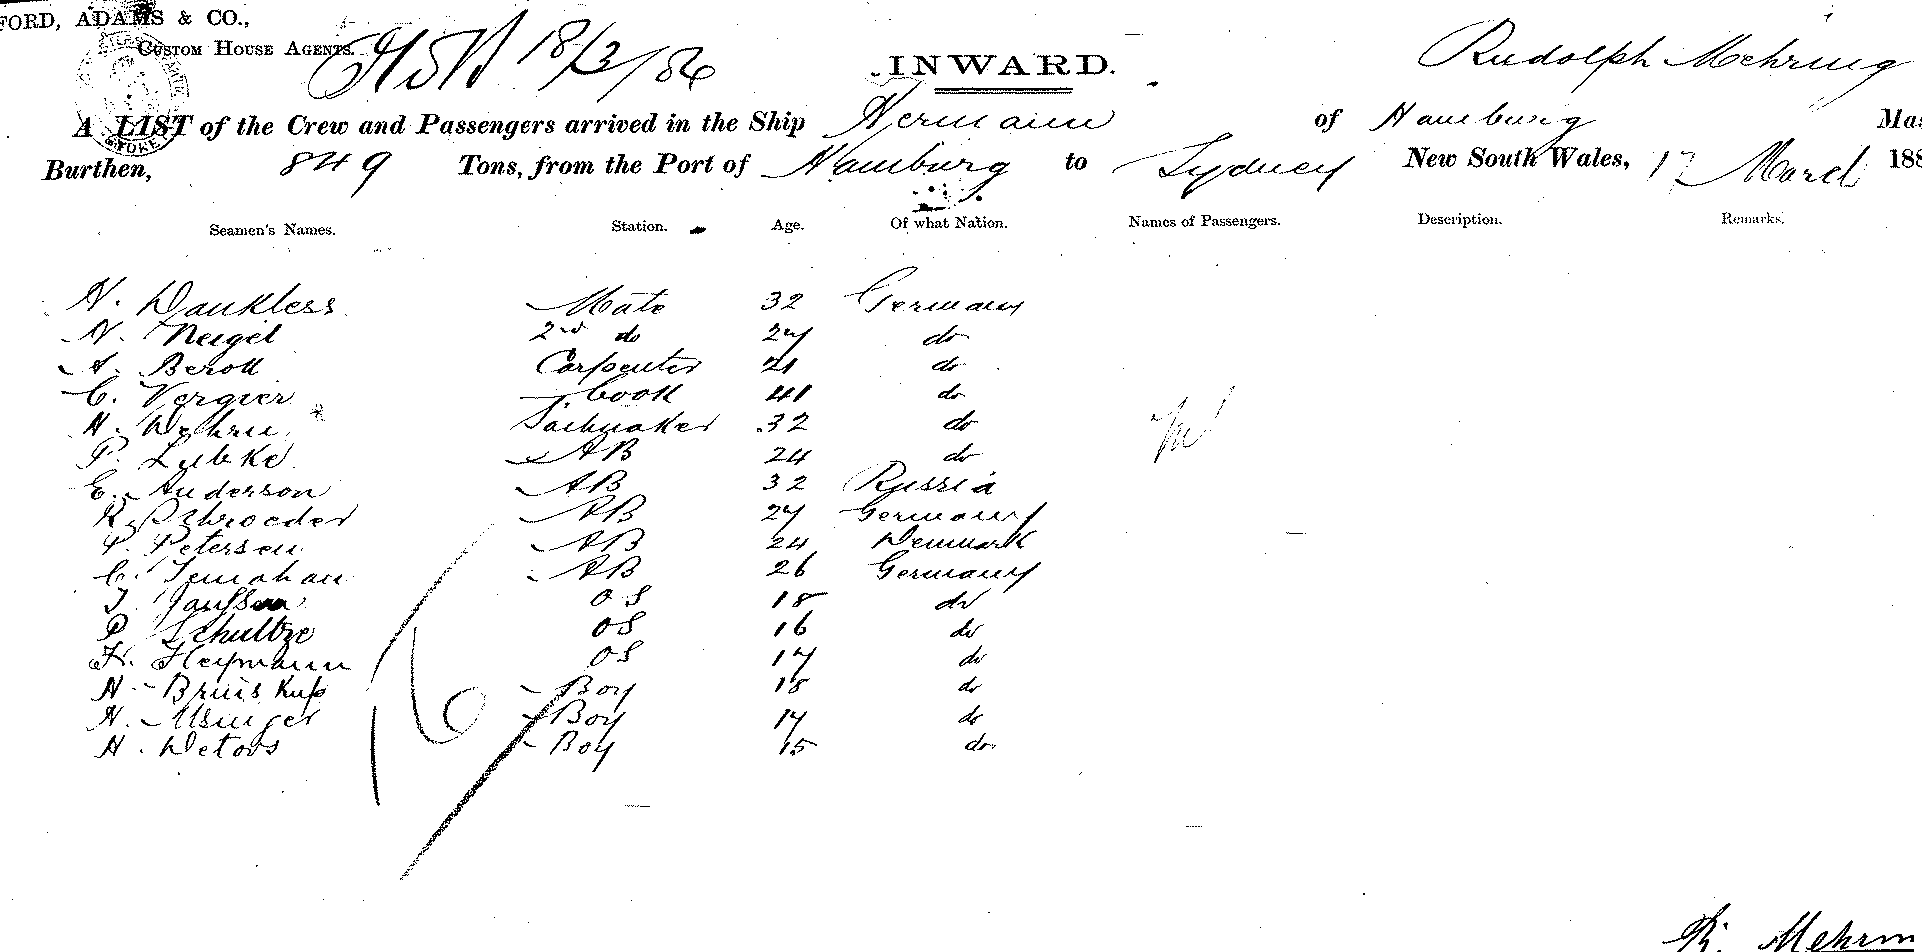 FORD, ADAMS & CO.,
CUSTOM HOUSE AGENTS. 18/3/86
INWARD. Rudolph Mehring
A LIST of the Crew and Passengers arrived in the Ship Hermann of Hamburg Mas
Burthen, 849 Tons, from the Port of Hamburg to Sydney New South Wales, 17 March 188
Seamen's Names. Station. Age. Of what Nation. Names of Passengers. Description. Remarks.
H. Dankless Mate 32 Germany
N. Neigel 2nd do 27 do
A. Beroll Carpenter 21 do
C. Vergier Cook 41 do
H. Wehru Sailmaker 32 do
P. Lubke AB 24 do
E. Anderson AB 32 Russia
R. Schroeder AB 27 Germany
P. Petersen AB 24 Denmark
C. AB 26 Germany
J. Janssen OS 18 do
P. Schultze OS 16 do
H. Heymann OS 17 do
H. Boy 18 do
H. Usinger Boy 17 do
H. Boy 15 do
16
R. Mehrin